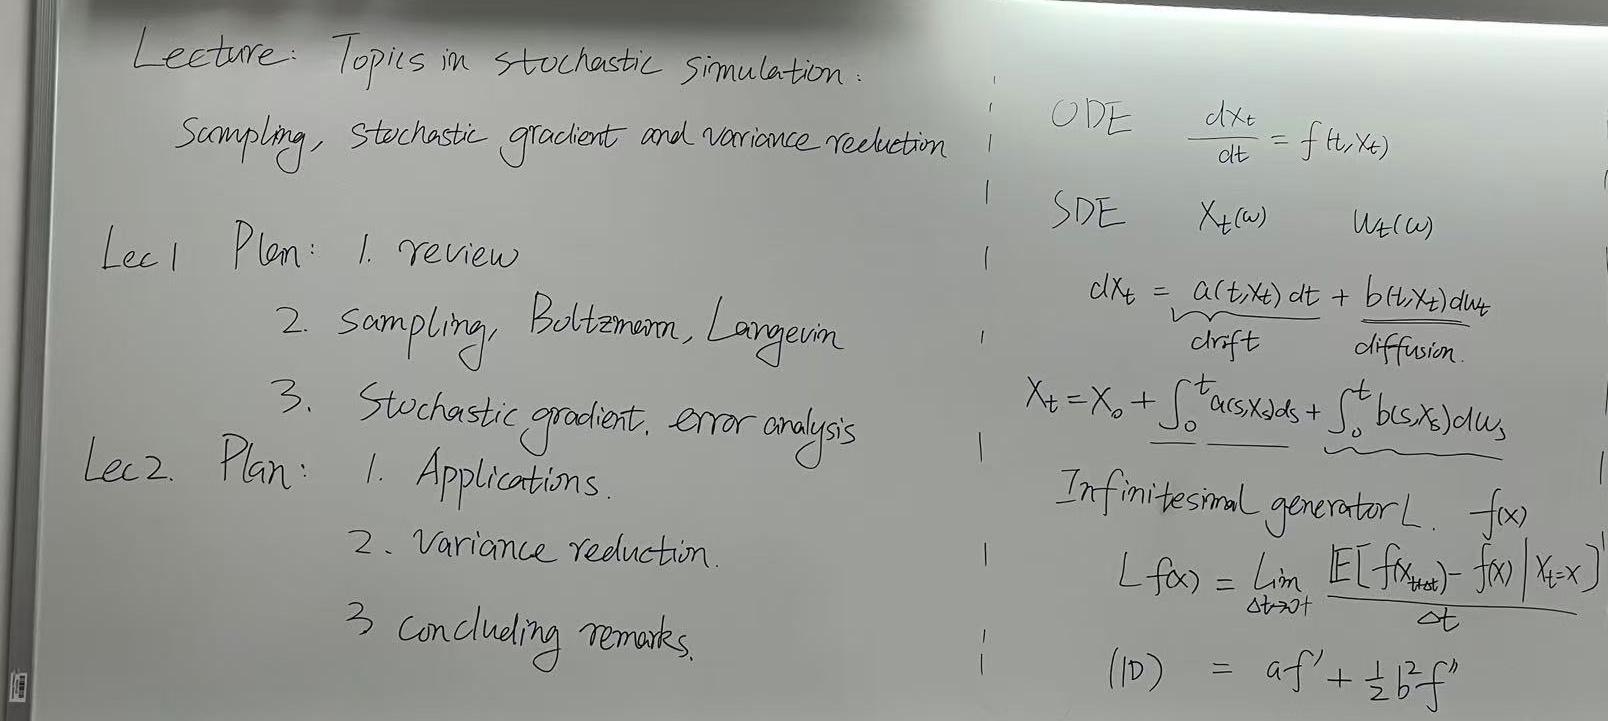 Lecture: Topics in stochastic simulation:
Sampling, stochastic gradient and variance reduction
Lec 1 Plan: 1. review
2. sampling, Boltzmann, Langevin
3. Stochastic gradient. error analysis
Lec 2. Plan: 1. Applications.
2. Variance reduction.
3 concluding remarks.
ODE dXt/dt = f(t,Xt)
SDE Xt(ω) Wt(ω)
dXt = a(t,Xt)dt + b(t,Xt)dWt
drift diffusion.
Xt = X₀ + ∫₀ᵗ a(s,Xs)ds + ∫₀ᵗ b(s,Xs)dWs
Infinitesimal generator L. f(x)
Lf(x) = lim Δt→0+ E[f(Xt+Δt) - f(x) | Xt=x] / Δt
(1D) = af' + ½b²f''